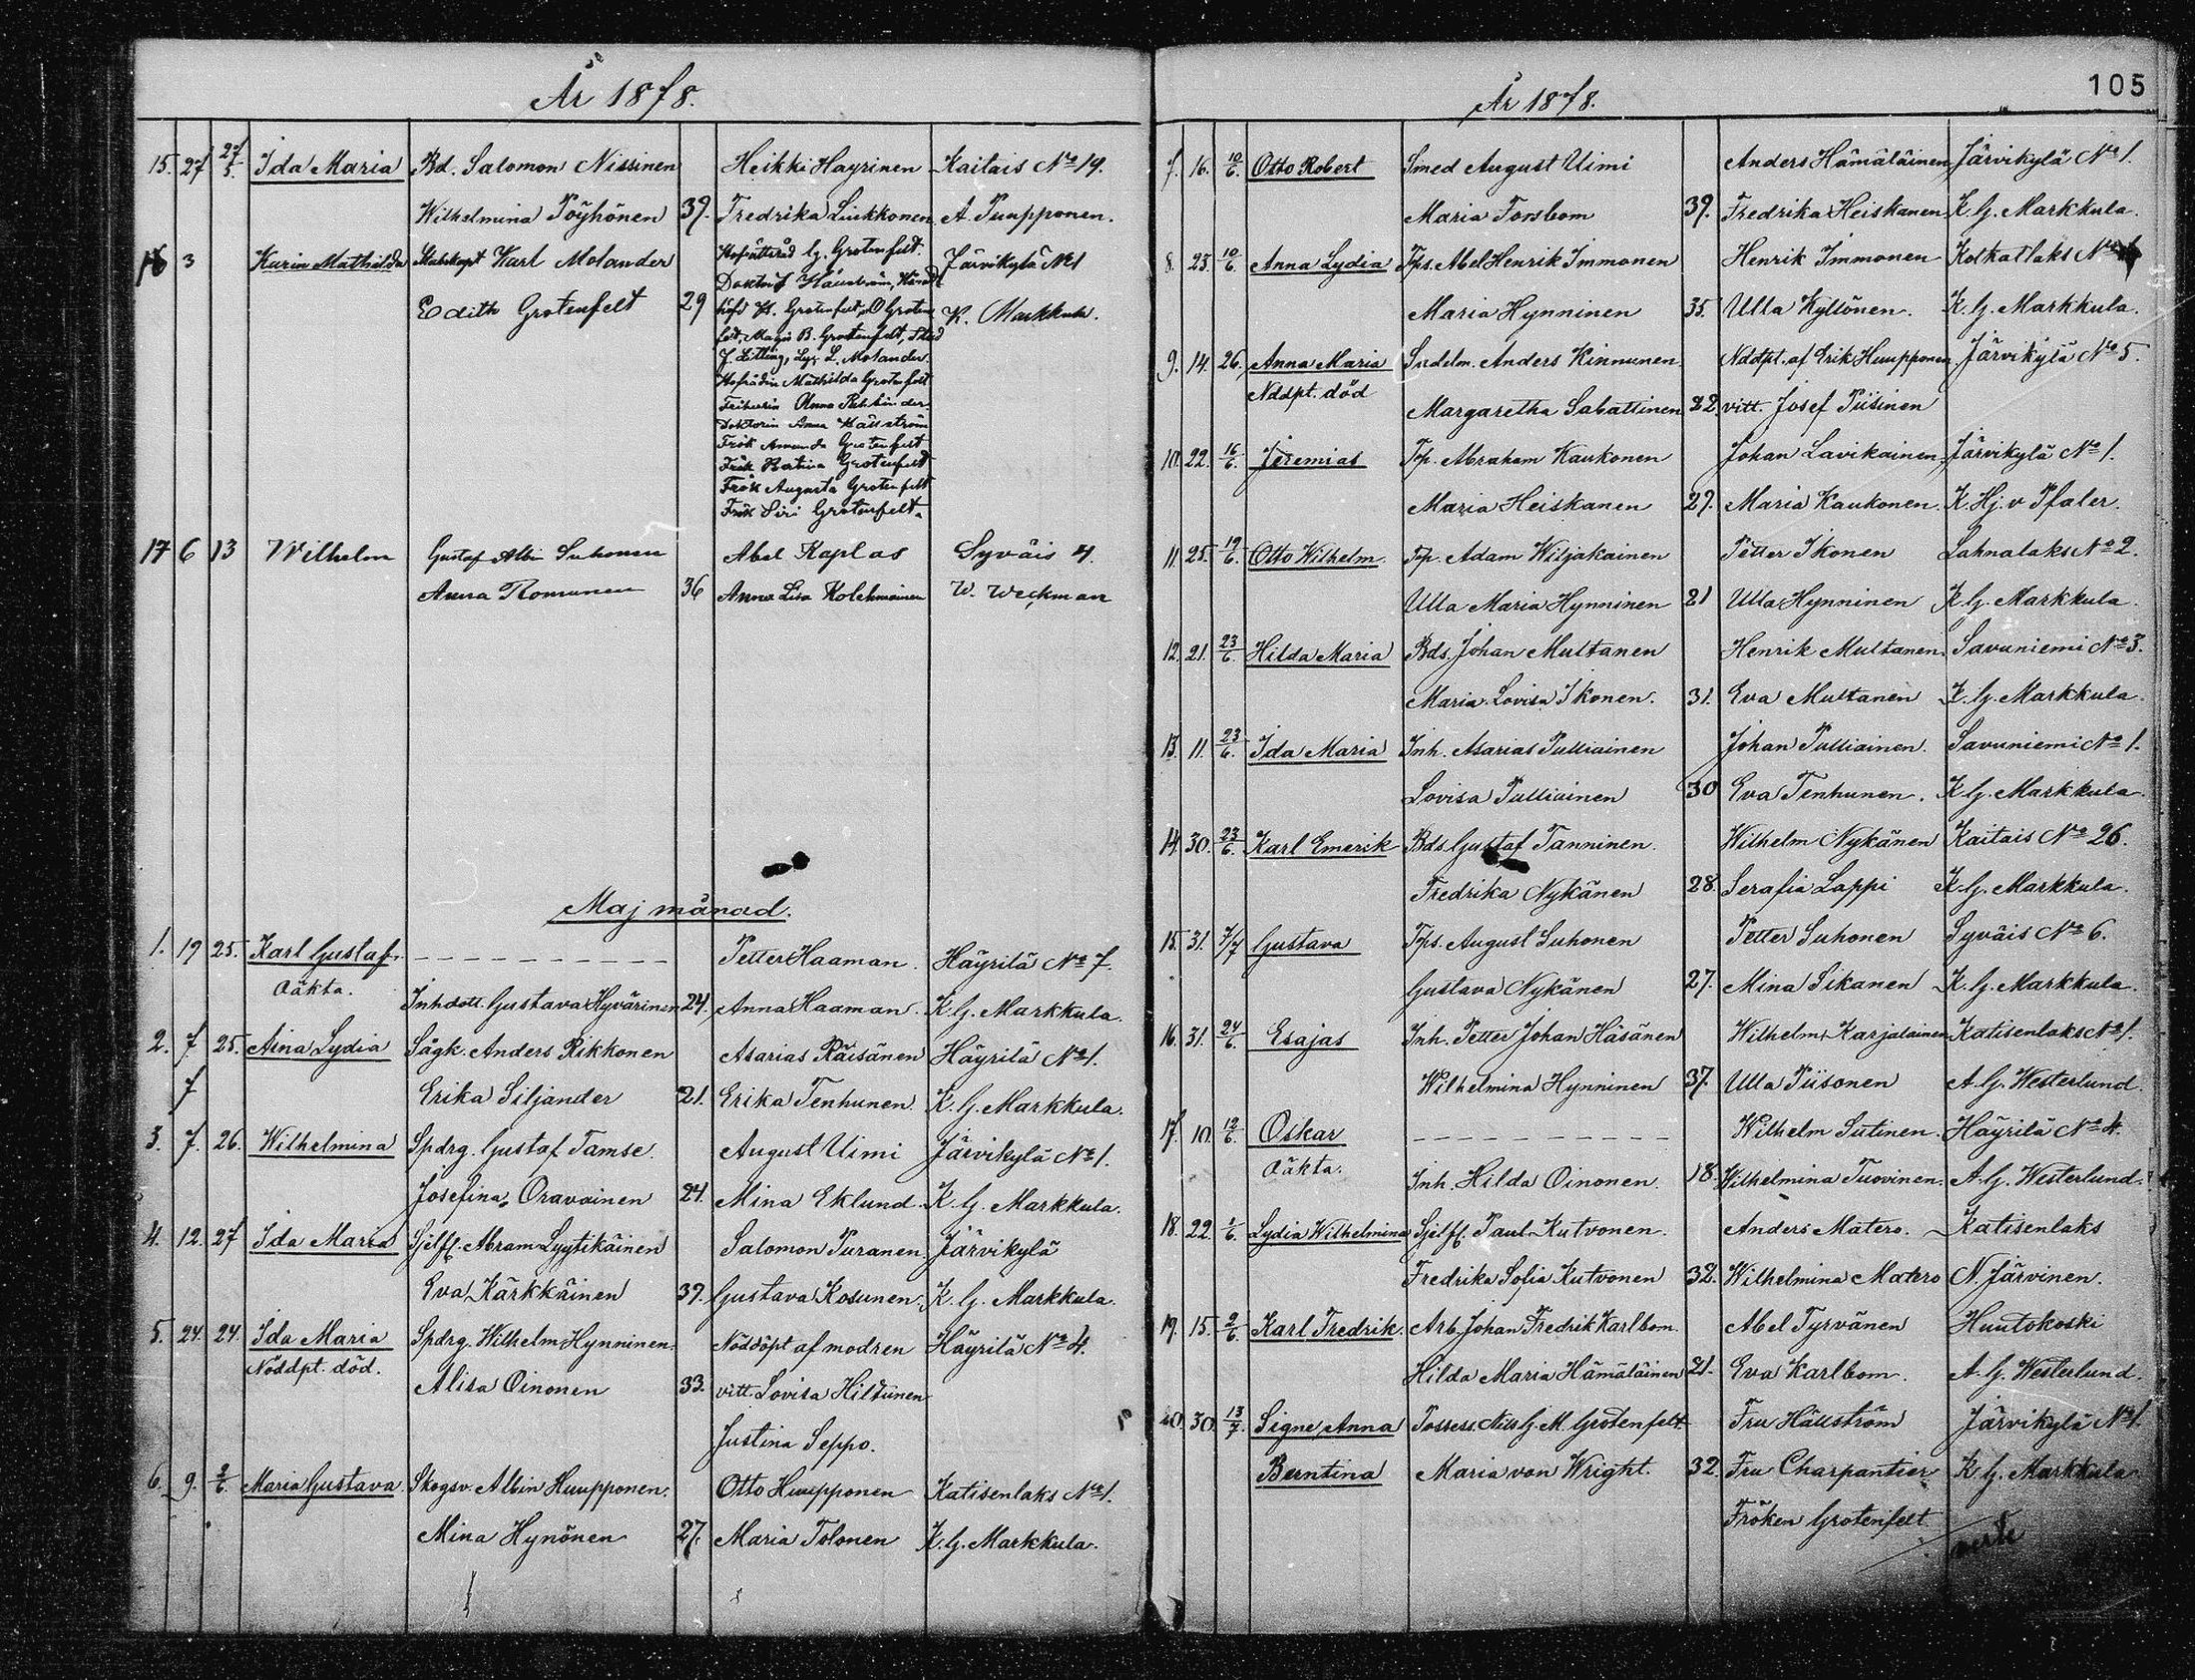 År 1878.
15. 27 27/5. Ida Maria Bd. Salomon Nissinen Heikki Hayrinen Kaitais No 19.
Wilhelmina Pöyhönen 39. Fredrika Liukkonen A. Puupponen.
16 3 Karin Mathilda Karl Molander Hofrättsråd G. Grotenfelt. Järvikylä No 1
Edith Grotenfelt 29 K. Markkula.
höfd K. Grotenfelt, O Groten
felt, Magis B. Grotenfelt, Stud
J. Litting, Lyz L. Molander.
Hofrådin Mathilda Grotenfelt
Friherrin Anna Rehbinder.
Doktorin Anna Hällström
Frök Amanda Grotenfelt
Frök Bertina Grotenfelt
Frök Augusta Grotenfelt
Frök Siri Grotenfelt.
17 6 13 Wilhelm Gustaf Albin Suhonen Abel Kaplas Syväis 4.
Anna Romunen 36 Anna Lisa Kolehmainen W. Weckman
Maj månad.
1. 19 25. Karl Gustaf. Petter Haaman. Häyrilä No 7.
Oäkta. Inhdott. Gustava Hyvärinen 24. Anna Haaman. K. G. Markkula.
2. 7 25. Aina Lydia Sågk. Anders Rikkonen Asarias Räisänen Häyrilä No 1.
7 Erika Siljander 21. Erika Tenhunen. K. G. Markkula.
3. 7. 26. Wilhelmina Spdrg. Gustaf Tamse. August Uimi Järvikylä No 1.
Josefina Oravainen 24. Mina Eklund. K. G. Markkula.
4. 12. 27 Ida Maria Sjelff. Abram Lyytikäinen Salomon Puranen. Järvikylä
Eva Kärkkäinen 39. Gustava Kosunen. K. G. Markkula.
5. 24. 24. Ida Maria Spdrg. Wilhelm Hynninen. Nöddöpt af modren Häyrilä No 4.
Nöddpt. död. Alisa Oinonen 33. vitt. Lovisa Hiltunen
Justina Seppo.
6. 9. 2/6. Maria Gustava. Skogsv. Albin Huupponen. Otto Huupponen Katisenlaks No 1.
Mina Hynönen 27. Maria Tolonen K. G. Markkula.
105
År 1878.
7. 16. 10/6. Otto Robert Smed August Uimi Anders Hämäläinen Järvikylä No 1.
Maria Forsbom 39. Fredrika Heiskanen K. G. Markkula.
8. 23. 10/6. Anna Lydia Tps. Abel Henrik Immonen Henrik Immonen Kotkatlaks No
Maria Hynninen 35. Ulla Kyllönen. K. G. Markkula.
9. 14. 26. Anna Maria Sndelm. Anders Kinnunen Nddpt. af Erik Huupponen Järvikylä No 5.
Nddpt. död Margaretha Sabattinen 22. vitt. Josef Piisinen
10. 22. 16/6. Jeremias Tp. Abraham Kaukonen Johan Lavikainen Järvikylä No 1.
Maria Heiskanen 29. Maria Kaukonen. K. Hj. v Pfaler.
11. 25. 19/6. Otto Wilhelm. Tp. Adam Wiljakainen Petter Ikonen Lahnalaks No 2.
Ulla Maria Hynninen 21 Ulla Hynninen K. G. Markkula.
12. 21. 23/6. Hilda Maria Bds. Johan Multanen Henrik Multanen. Savuniemi No 3.
Maria Lovisa Ikonen. 31. Eva Multanen K. G. Markkula.
13. 11. 23/6. Ida Maria Inh. Asarias Pulliainen Johan Pulliainen. Savuniemi No 1.
Lovisa Pulliainen 30 Eva Tenhunen. K. G. Markkula.
14. 30. 23/6. Karl Emerik Bds Gustaf Tanninen. Wilhelm Nykänen Kaitais No 26.
Fredrika Nykänen 28. Serafia Lappi K. G. Markkula.
15. 31. 7/7 Gustava Tps. August Suhonen Petter Suhonen Syväis No 6.
Gustava Nykänen 27. Mina Sikanen K. G. Markkula.
16. 31. 24/6. Esajas Inh. Petter Johan Häsänen Wilhelm Karjalainen Katisenlaks No 1.
Wilhelmina Hynninen 37. Ulla Piisonen A. G. Westerlund.
17. 10. 12/6. Oskar Wilhelm Sutinen. Häyrilä No 4.
Oäkta. Inh. Hilda Oinonen. 18. Wilhelmina Tuovinen. A. G. Westerlund.
18. 22. 1/6. Lydia Wilhelmina Sjelff. Paul Kutvonen. Anders Matero. Katisenlaks
Fredrika Sofia Kutvonen 32. Wilhelmina Matero N. Järvinen.
19. 15. 2/6. Karl Fredrik. Arb. Johan Fredrik Karlbom. Abel Tyrvänen Huutokoski
Hilda Maria Hämäläinen 21. Eva Karlbom. A. G. Westerlund.
20. 30. 13/7. Signe Anna Possess. Nils G. M. Grotenfelt Fru Hällström Järvikylä No 1.
Berntina Maria von Wright. 32. Fru Charpantier K. G. Markkula.
Fröken Grotenfelt